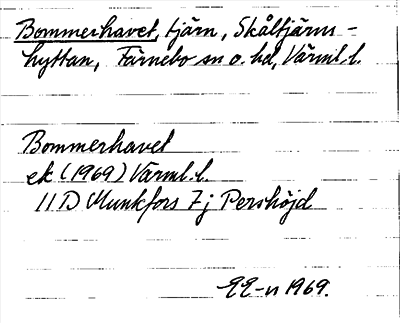 Bommerhavet, tjärn, Skåltjärns-
hyttan, Färnebo sn o. hd, Värml. l.
Bommerhavet
ek (1969) Värml. l.
11D Munkfors 7j Pershöjd
EE-n 1969.